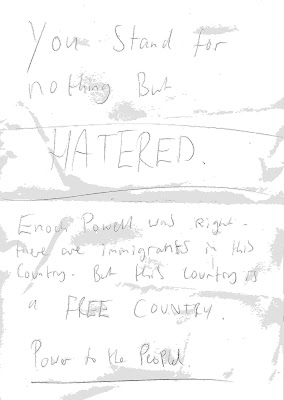 You Stand for
nothing But
HATERED.
Enoch Powell was right -
there are immigrants in this
Country. But this country is
a FREE COUNTRY.
Power to the People.